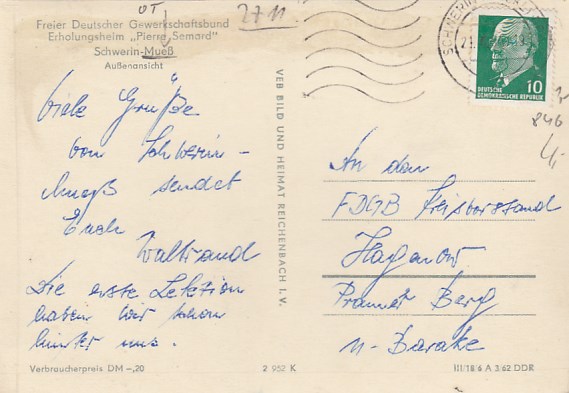 Freier Deutscher Gewerkschaftsbund
Erholungsheim „Pierre Semard"
Schwerin-Mueß
Außenansicht
OT
27 11
Viele Grüße
von Schwerin-
Mueß sendet
Euch
Waltraud
Die erste Lektion
haben wir schon
hinter uns.
Verbraucherpreis DM –,20
VEB BILD UND HEIMAT REICHENBACH I. V.
2 952 K
SCHWERIN
DEUTSCHE
DEMOKRATISCHE REPUBLIK
10
846
4,-
An den
FDGB Kreisvorstand
Hagenow
Berg
n-Baracke
III/18 6 A 3 62 DDR